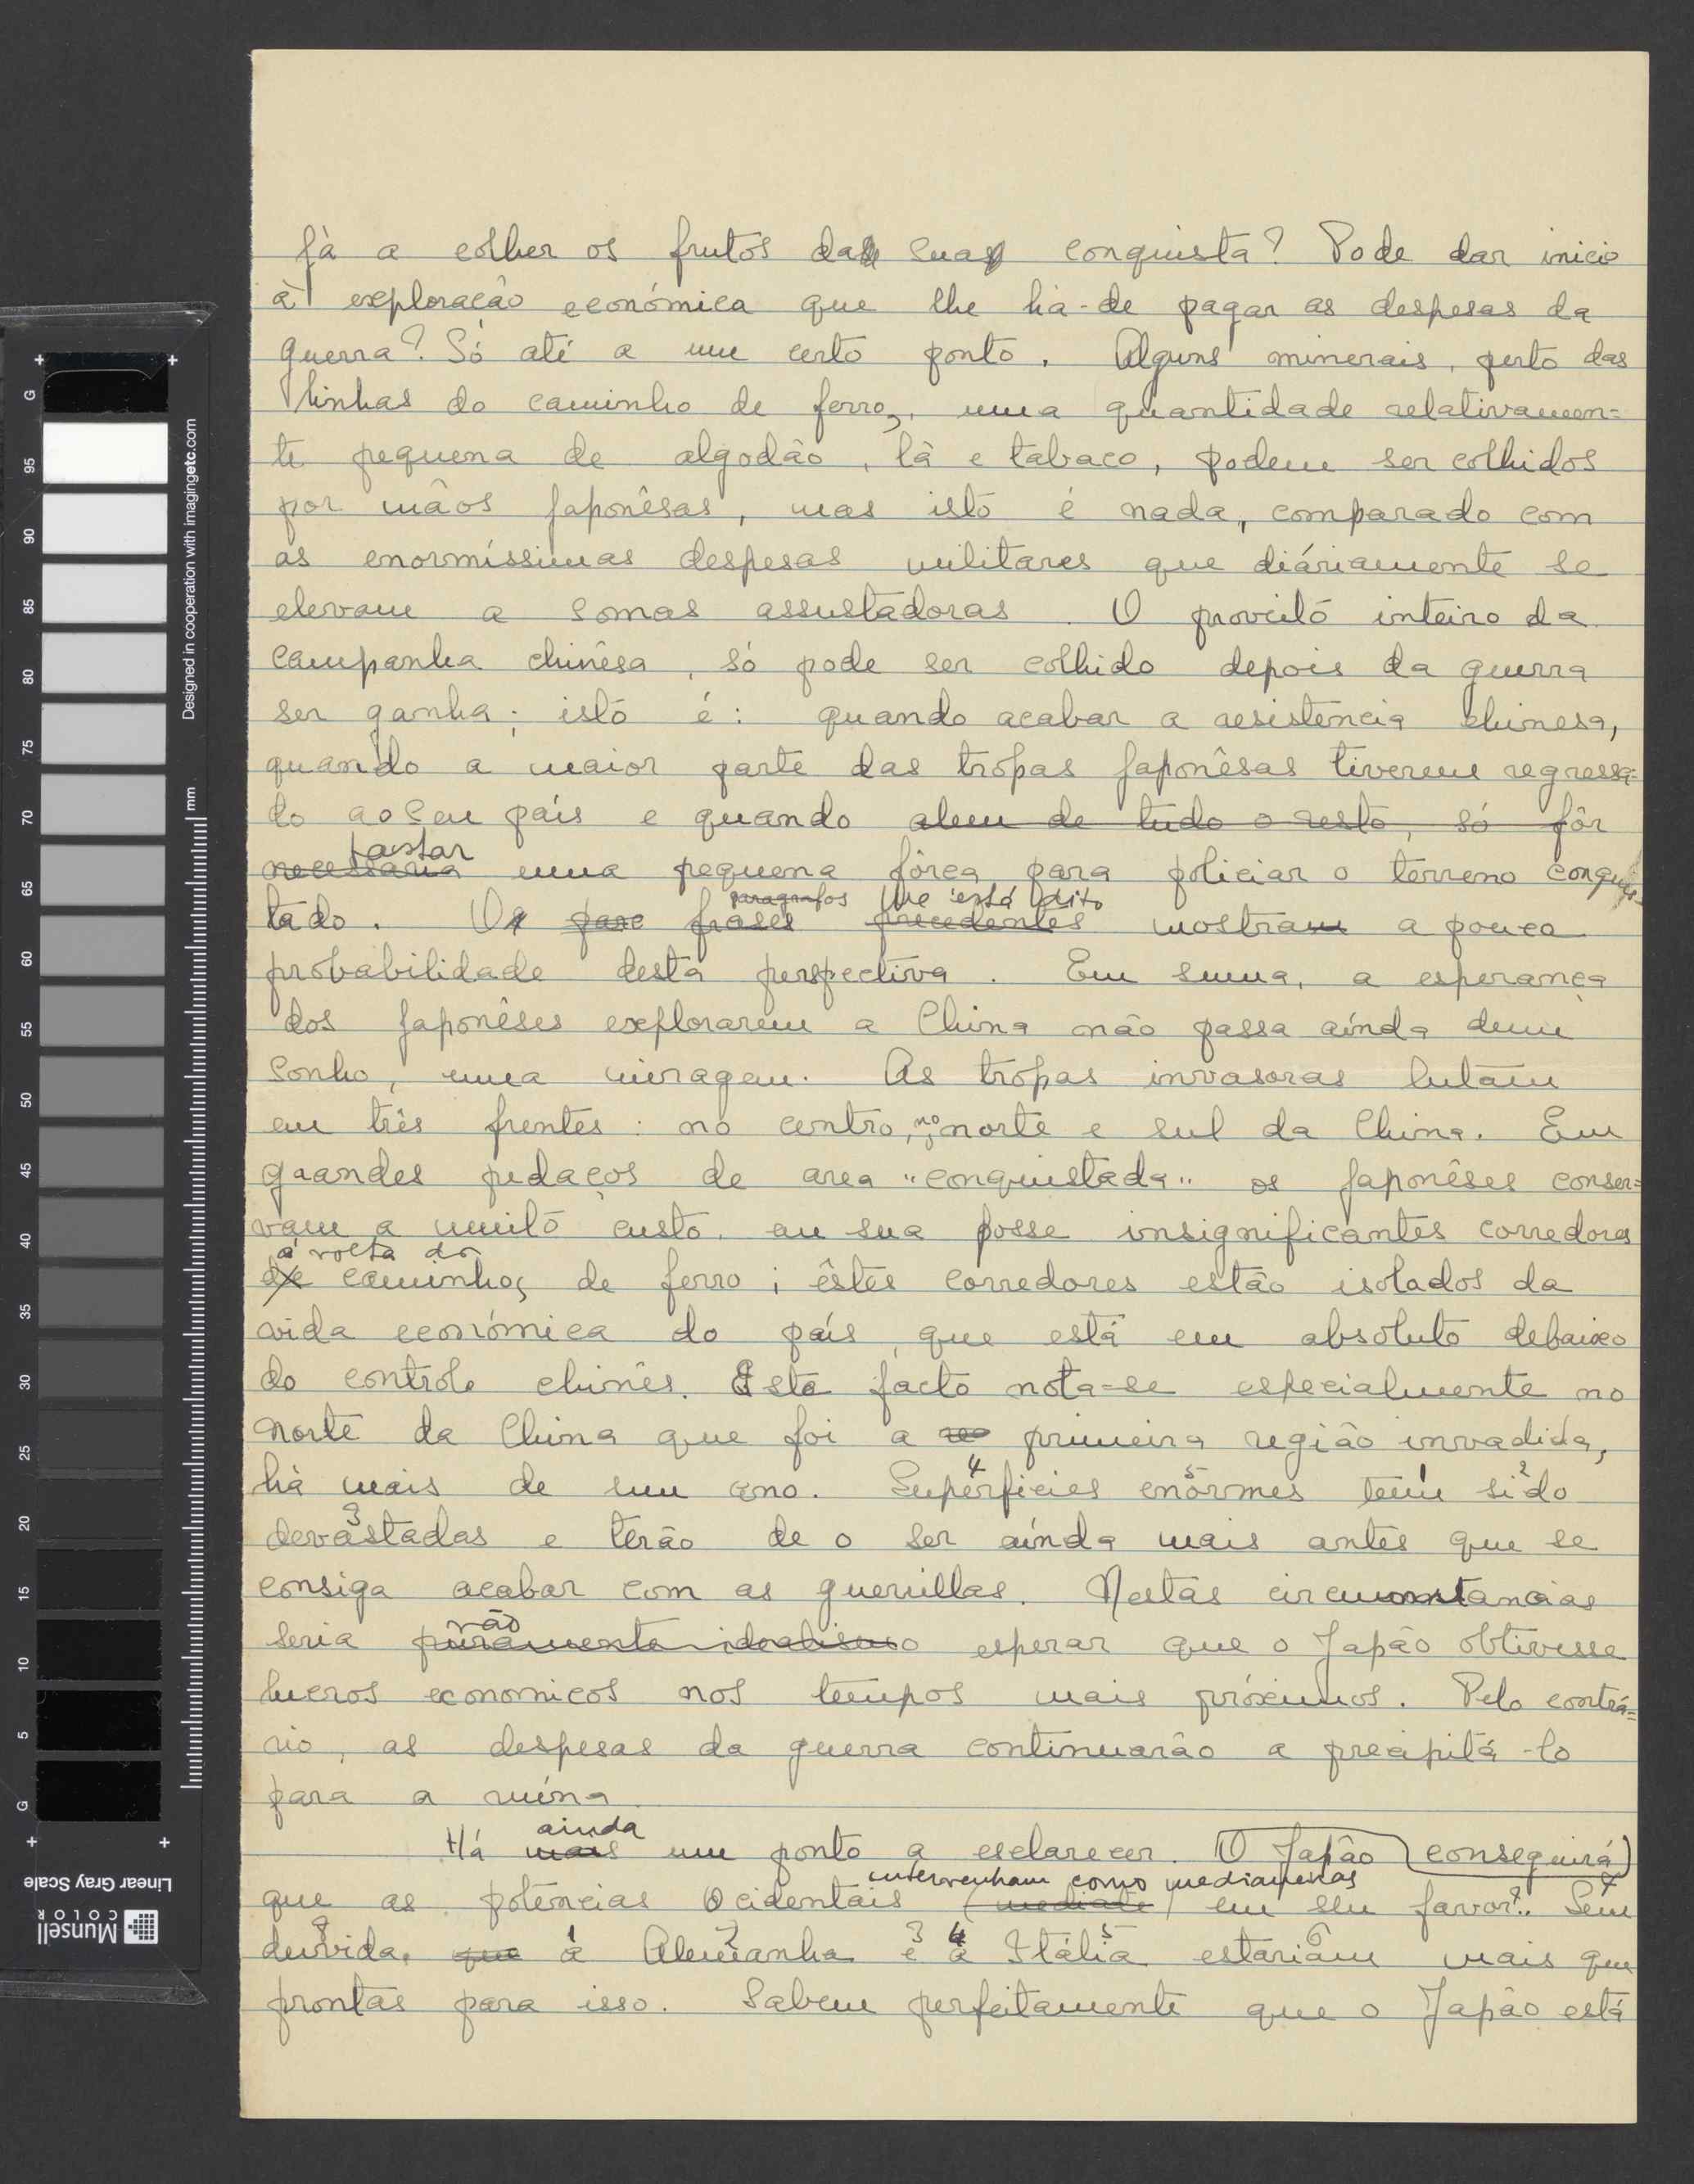 já a colher os frutos da sua conquista? Pode dar inicio
à exploração económica que lhe há-de pagar as despesas da
guerra? Só até a um certo ponto. Alguns minerais, perto das
linhas do caminho de ferro, uma quantidade relativamen=
te pequena de algodão, lã e tabaco, podem ser colhidos
por mãos japonêsas, mas isto é nada, comparado com
as enormíssimas despesas militares que diáriamente se
elevam a somas assustadoras. O proveito inteiro da
campanha chinêsa, só pode ser colhido depois da guerra
ser ganha; isto é: quando acabar a resistencia chinesa,
quando a maior parte das tropas japonêsas tiverem regressa=
do ao seu país e quando alem de tudo o resto, só fôr
bastar
necessaria uma pequena fôrça para policiar o terreno conquis-
paragrafos que está dito
tado. O frases precedentes mostram a pouca
probabilidade desta perspectiva. Em suma, a esperança
dos japonêses explorarem a China não passa aínda dum
sonho, uma miragem. As tropas invasoras lutam
em três frentes: no centro, no norte e sul da China. Em
grandes pedaços de area "conquistada" os japonêses conser=
vam a muito custo em sua posse insignificantes corredores
á volta do
de caminhos de ferro; êstes corredores estão isolados da
vida económica do país, que está em absoluto debaixo
do controle chinês. Este facto nota-se especialmente no
norte da China que foi a primeira região invadida,
há mais de um ano. Superficies enormes tem sido
4 5 1 2
devastadas e terão de o ser aínda mais antes que se
3
consiga acabar com as guerrillas. Nestas circumstancias
vão
seria puramente idealismo esperar que o Japão obtivesse
lucros economicos nos tempos mais próximos. Pelo contrá=
rio, as despesas da guerra continuarão a precipitá-lo
para a ruína.
ainda
Há mais um ponto a esclarecer. O Japão conseguirá
intervenham como medianeiras
que as potencias Ocidentais (mediate) em seu favor? Sem
7
duvida, que a Alemanha e a Itália estariam mais que
8 1 2 3 4 5 6
prontas para isso. Sabem perfeitamente que o Japão está
Designed in cooperation with imagingetc.com
mm
G 95 90 85 80 75 70 65 60 55 50 45 40 35 30 25 20 15 10 5 G
Linear Gray Scale
Munsell
COLOR